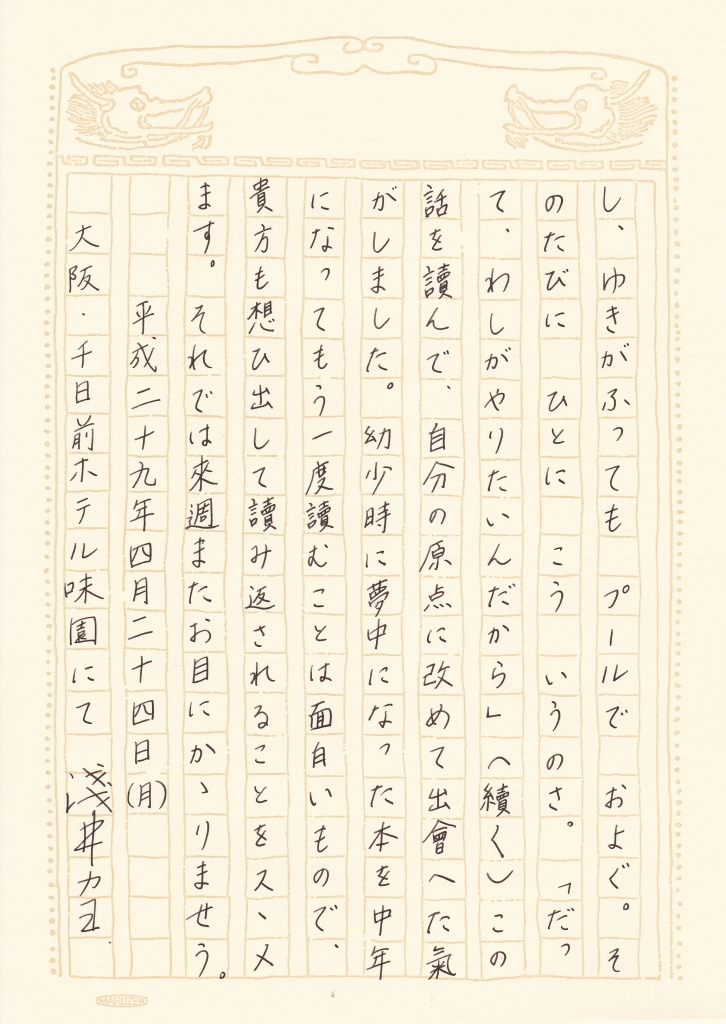 し、ゆきがふっても　プールで　およぐ。そ
のたびに　ひとに　こう　いうのさ。「だっ
て、わしがやりたいんだから」（續く）この
話を讀んで、自分の原点に改めて出會へた氣
がしました。幼少時に夢中になった本を中年
になってもう一度讀むことは面白いもので、
貴方も想ひ出して讀み返されることをスヽメ
ます。それでは來週またお目にかゝりませう。
平成二十九年四月二十四日(月)
大阪・千日前ホテル味園にて　淺井カヨ
MARUZEN